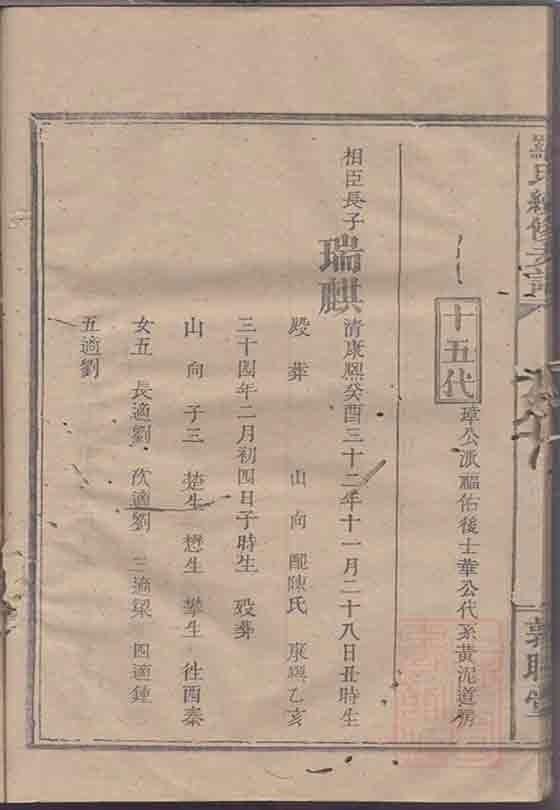 氏續修支譜
十五代
璋公派福佑後士華公代系黃泥道房
相臣長子瑞麒清康熙癸酉三十二年十一月二十八日丑時生
歿葬 山向 配陳氏 康熙乙亥
三十四年二月初四日子時生 歿葬
山向 子三 楚生 懋生 攀生 徃西秦
女五 長適劉 次適劉 三適梁 四適鍾
五適劉